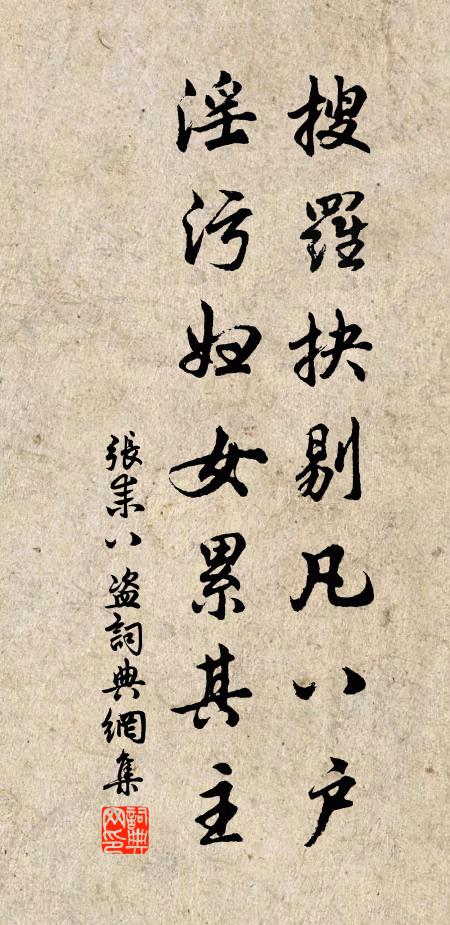 搜羅抉剔凡八户
淫污婦女累其主
張耒八盗詞典網集
詞典网印